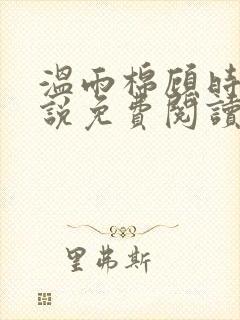 溫雨棉顧時
說免費閱讀
里弗斯